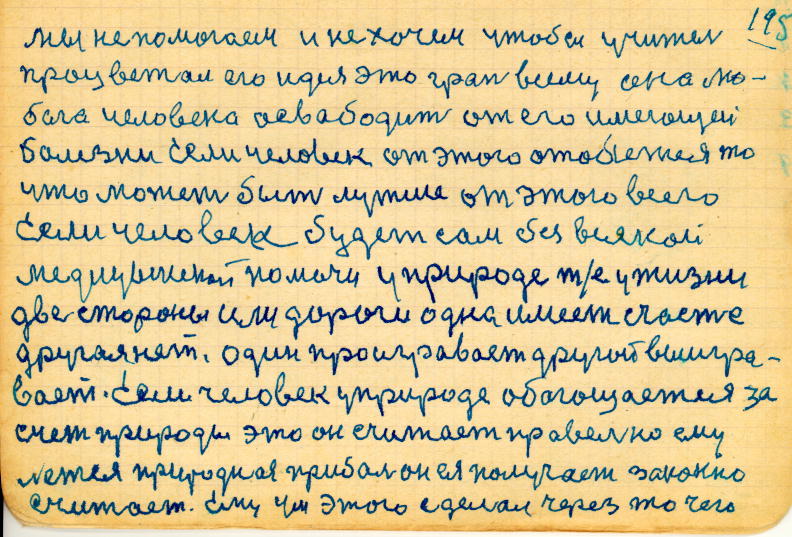 195
мы не помогаем и не хочем чтобы учител
процветал его идея это грап всему она лю-
бога человека освабодит от его имеющей
болизни если человек от этого отобьется то
что может быт лутше от этого всего
если человек будет сам без всякой
медицынской помочи у природе т/е у жизни
две стороны или дороги одна имеет счасте
другая нет. один проигравает другой выигра-
вает. если человек у природе обогощается за
счет природы это он считает правелно ему
лется природная прибал он ея получает законно
считает. ему ум этого сделал через то чего